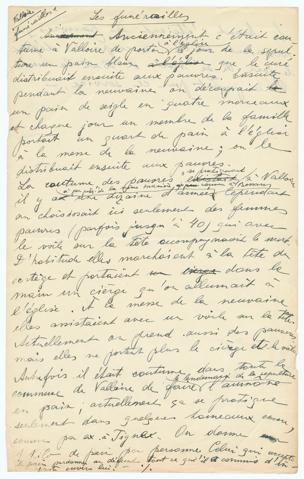 Valloire
funérailles
Les funérailles
Anciennement c'était cou-
tume à Valloire de porter, le jour de la sépul-
ture un pain blanc à l'église que le curé
distribuait ensuite aux pauvres. Ensuite
pendant la neuvaine on découpait
un pain de seigle en quatre morceaux
et chaque jour un membre de la famille
portait un quart de pain à l'église
à la messe de la neuvaine ; on le
distribuait ensuite aux pauvres.
La coutume des pauvres à Valloire
il y a une dizaine d'années
on choisissait ici seulement des femmes
pauvres (parfois jusqu'à 40) qui avec
le voile sur la tête accompagnaient le mort.
D'habitude elles marchaient à la tête du
cortège et portaient dans la
main un cierge qu'on allumait à
l'église. A la messe de la neuvaine
elles assistaient avec un voile sur la tête
Actuellement on prend aussi des pauvres
mais elles ne portent plus le cierge et le voile
Autrefois il était coutume dans toute la
commune de Valloire de faire l'aumône
en pain ; actuellement ça se pratique
seulement dans quelques hameaux
comme par ex. à Tigny. On donne
de pain par personne Celui qui